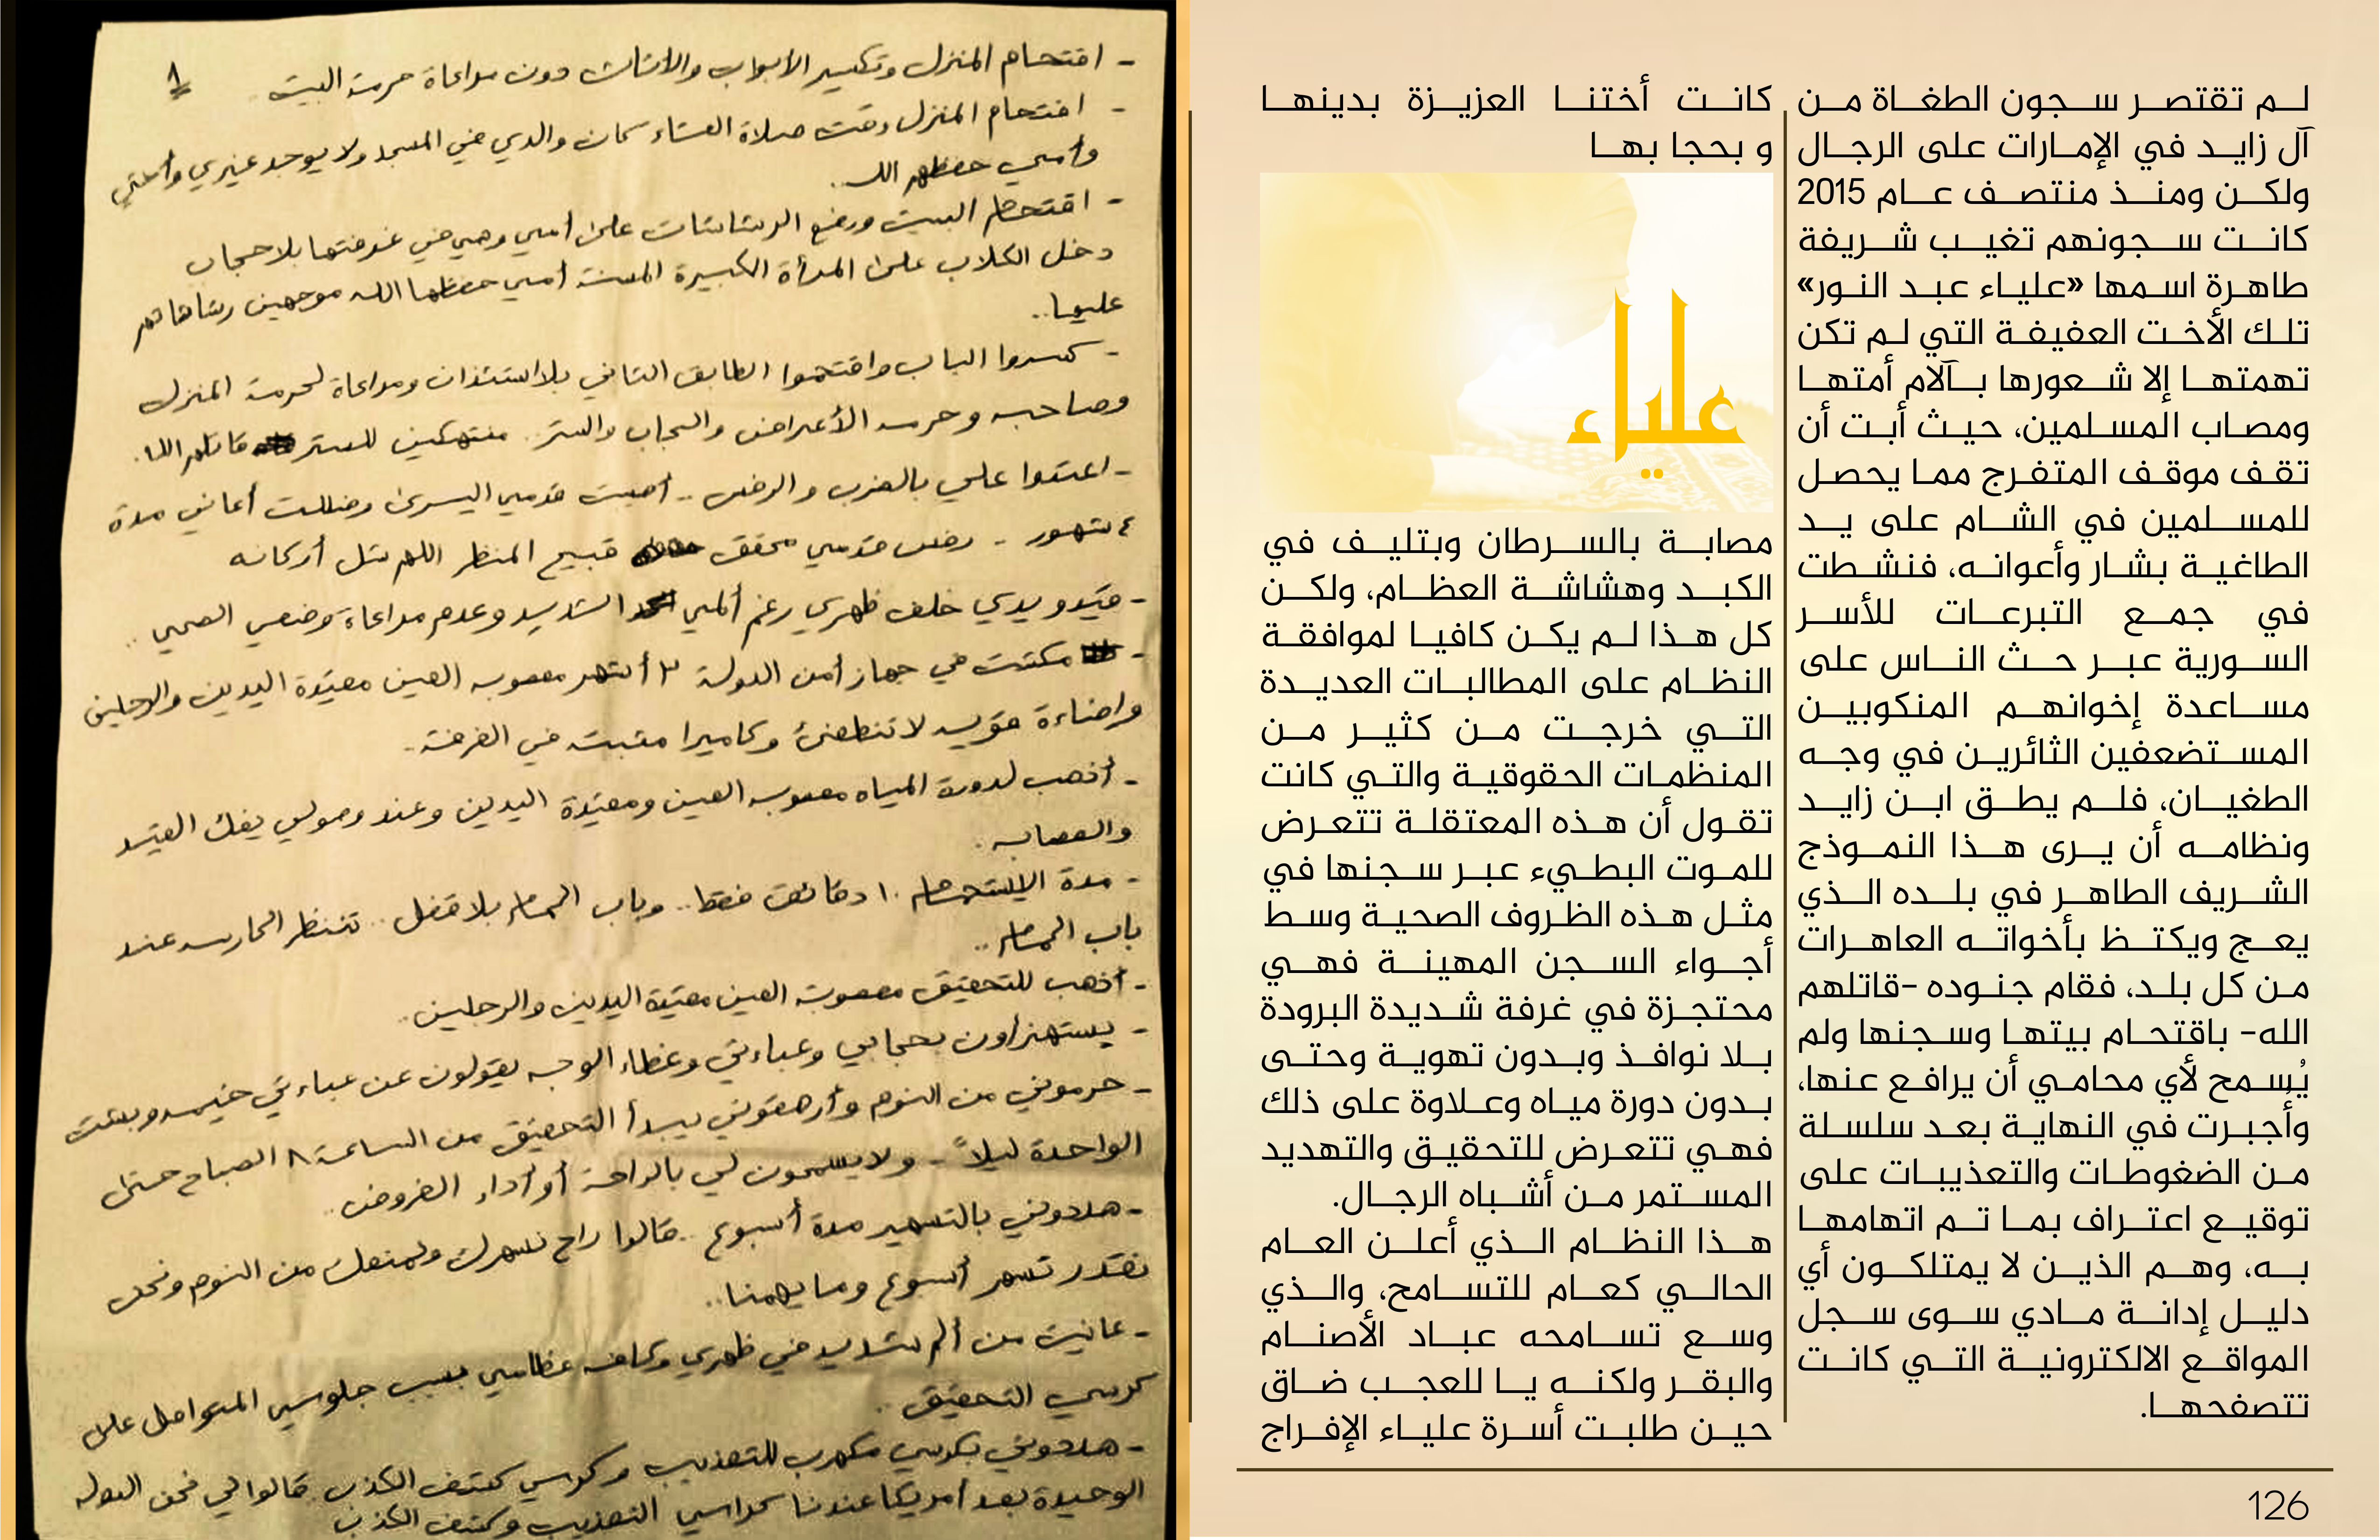 لم تقتصر سجون الطغاة من
آل زايد في الإمارات على الرجال
ولكن ومنذ منتصف عام 2015
كانت سجونهم تغيب شريفة
طاهرة اسمها «علياء عبد النور»
تلك الأخت العفيفة التي لم تكن
تهمتها إلا شعورها بآلام أمتها
ومصاب المسلمين، حيث أبت أن
تقف موقف المتفرج مما يحصل
للمسلمين في الشام على يد
الطاغية بشار وأعوانه، فنشطت
في جمع التبرعات للأسر
السورية عبر حث الناس على
مساعدة إخوانهم المنكوبين
المستضعفين الثائرين في وجه
الطغيان، فلم يطق ابن زايد
ونظامه أن يرى هذا النموذج
الشريف الطاهر في بلده الذي
يعج ويكتظ بأخواته العاهرات
من كل بلد، فقام جنوده -قاتلهم
الله- باقتحام بيتها وسجنها ولم
يُسمح لأي محامي أن يرافع عنها،
وأُجبرت في النهاية بعد سلسلة
من الضغوطات والتعذيبات على
توقيع اعتراف بما تم اتهامها
به، وهم الذين لا يمتلكون أي
دليل إدانة مادي سوى سجل
المواقع الالكترونية التي كانت
تتصفحها.
كانت أختنا العزيزة بدينها
و بحجا بها
علياء
مصابة بالسرطان وبتليف في
الكبد وهشاشة العظام، ولكن
كل هذا لم يكن كافيا لموافقة
النظام على المطالبات العديدة
التي خرجت من كثير من
المنظمات الحقوقية والتي كانت
تقول أن هذه المعتقلة تتعرض
للموت البطيء عبر سجنها في
مثل هذه الظروف الصحية وسط
أجواء السجن المهينة فهي
محتجزة في غرفة شديدة البرودة
بلا نوافذ وبدون تهوية وحتى
بدون دورة مياه وعلاوة على ذلك
فهي تتعرض للتحقيق والتهديد
المستمر من أشباه الرجال.
هذا النظام الذي أعلن العام
الحالي كعام للتسامح، والذي
وسع تسامحه عباد الأصنام
والبقر ولكنه يا للعجب ضاق
حين طلبت أسرة علياء الإفراج
126
١
- اقتحام المنزل وتكسير الأبواب والاثاث دون مراعاة حرمة البيت
- اقتحام المنزل وقت صلاة العشاء كان والدي في المسجد ولا يوجد غيري وأختي
وأمي حفظهم الله..
- اقتحام البيت ورفع الرشاشات على أمي وهي في غرفتها بلا حجاب
دخل الكلاب على المرأة الكبيرة المسنة أمي حفظها الله موجهين رشاشاتهم
عليها..
- كسروا الباب واقتحموا الطابق الثاني بلا استئذان ومراعاة لحرمة المنزل
وصاحبه وحرمه الأعراض والحجاب والستر.. منتهكين للستر قاتلهم الله.
- اعتدوا علي بالضرب والرفس.. أصيبت قدمي اليسرى وظللت أعاني مدة
٤ شهور - رفس قدمي محقق قبيح المنظر اللهم شل أركانه
- قيدو يدي خلف ظهري رغم ألمي الشديد وعدم مراعاة وضعي الصحي..
- مكثت في جهاز أمن الدولة ٣ أشهر معصوبه العين مقيدة اليدين والرجلين
واضاءة قويه لا تنطفئ وكاميرا مثبته في الغرفة.
- أذهب لدورة المياه معصوبه العين ومقيدة اليدين وعند وصولي يفك القيد
والعصابه.
- مدة الاستحمام ١٠ دقائق فقط.. وباب الحمام بلا قفل.. تنتظر الحارسه عند
باب الحمام..
- أذهب للتحقيق معصوبة العين مقيدة اليدين والرجلين..
- يستهزأون بحجابي وعباءتي وغطاء الوجه يقولون عن عباءتي خيمه
- حرموني من النوم وأرهقوني يبدأ التحقيق من الساعة ٨ الصباح حتى
الواحدة ليلاً - ولا يسمحون لي بالراحة أو أداء الفروض..
- هددوني بالتسهير مدة أسبوع.. قالوا راح نسهرك ونمنعك من النوم ونحن
نقدر نسهر أسبوع وما يهمنا..
- عانيت من ألم شديد في ظهري وكافه عظامي بسبب جلوسي المتواصل على
كرسي التحقيق..
- هددوني بكرسي مكهرب للتعذيب وكرسي كشف الكذب قالوا لي نحن الدوله
الوحيدة بعد أمريكا عندنا كراسي التعذيب وكشف الكذب